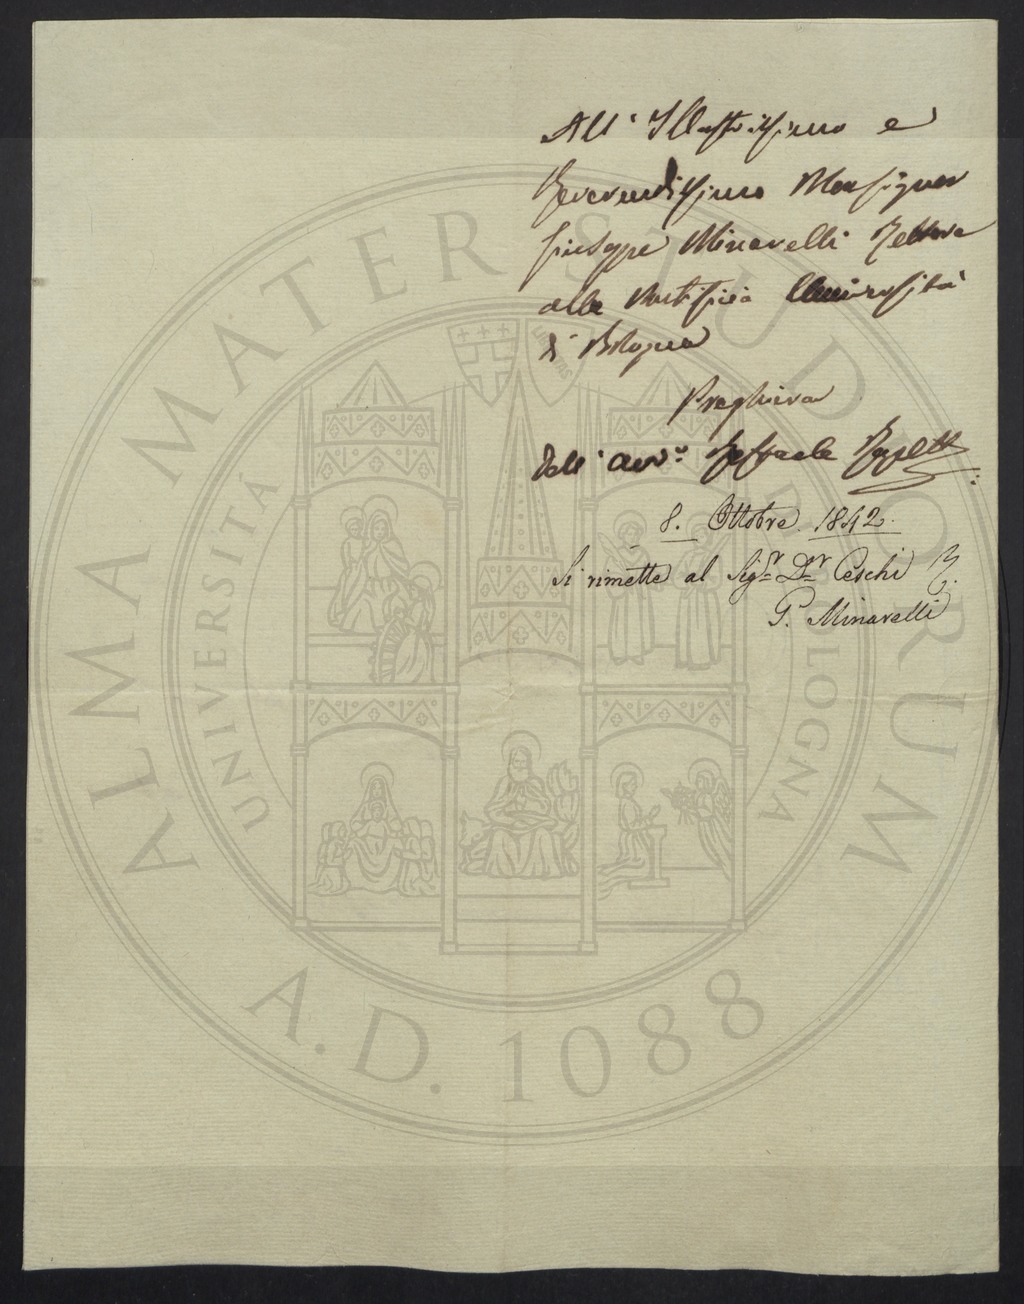 All' Illustrissimo e
Reverendissimo Monsignor
Giuseppe Minarelli Rettore
alla Pontificia Università
di Bologna
Preghiera
Dell' Avv.o Raffaele
8. Ottobre 1842.
Si rimette al Sig.r D.r Ceschi
G. Minarelli
ALMA MATER STUDIORUM
UNIVERSITÁ DI BOLOGNA
A.D. 1088